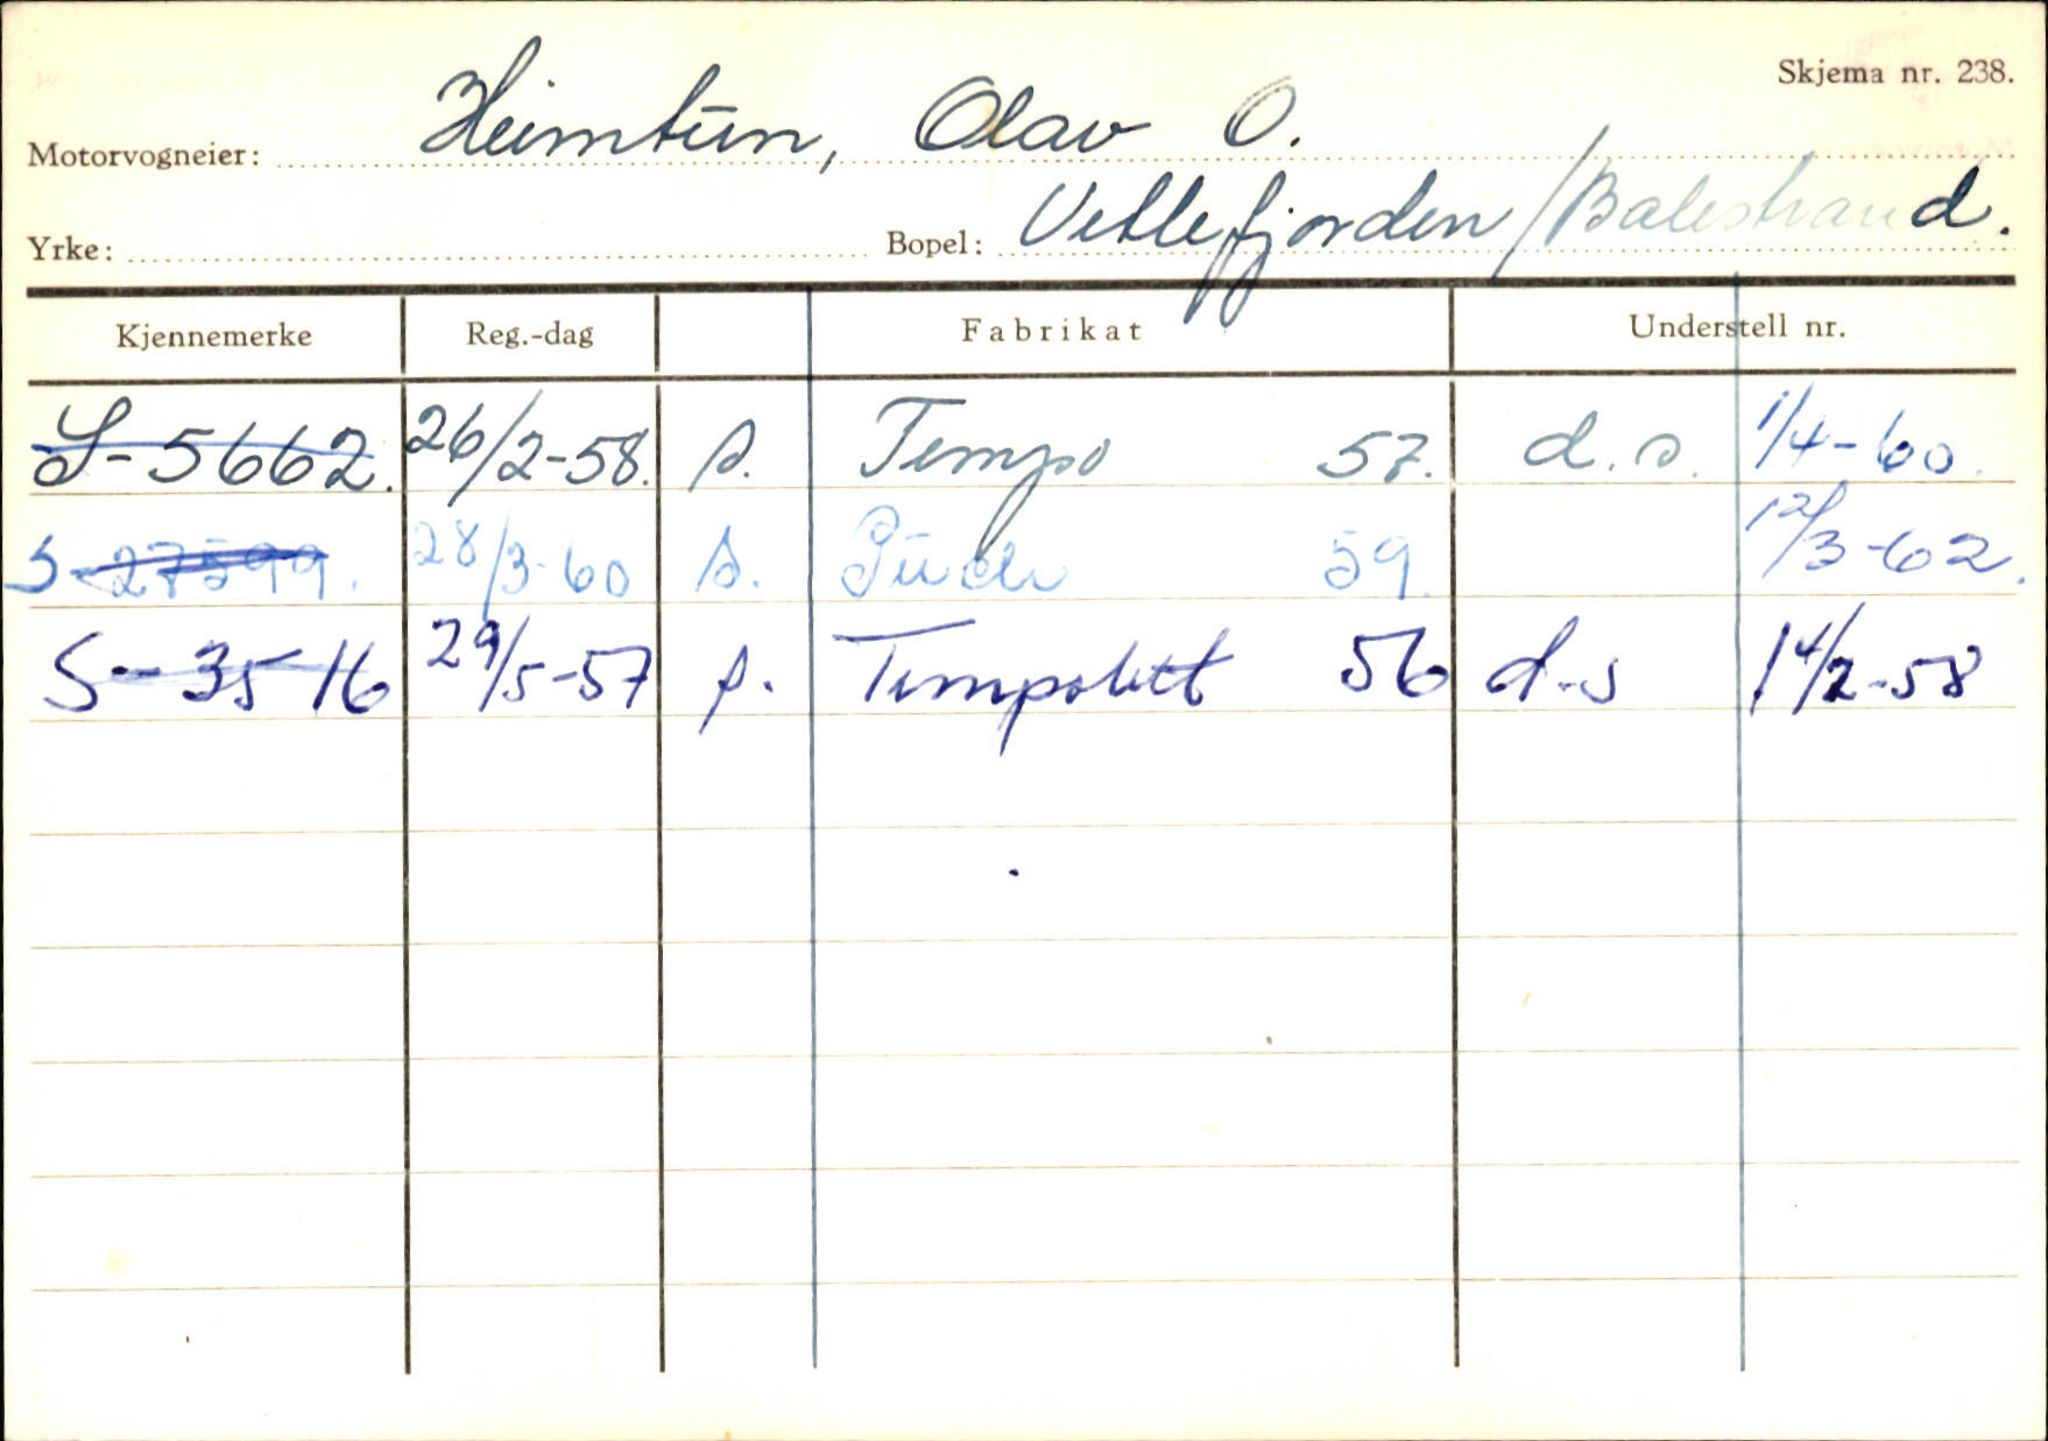 Skjema nr. 238.
Motorvogneier: Heimtun, Olav O.
Yrke: Bopel: Vetlefjorden/Balestrand.
Kjennemerke Reg.-dag Fabrikat Understell nr.
S-5662. 26/2-58. s. Tempo 57. d.s. 1/4-60.
S-27599. 28/3-60 s. Puch 59. 12/3-62.
S-3516 29/5-57 s. Tempolett 56 d-s 14/2-58